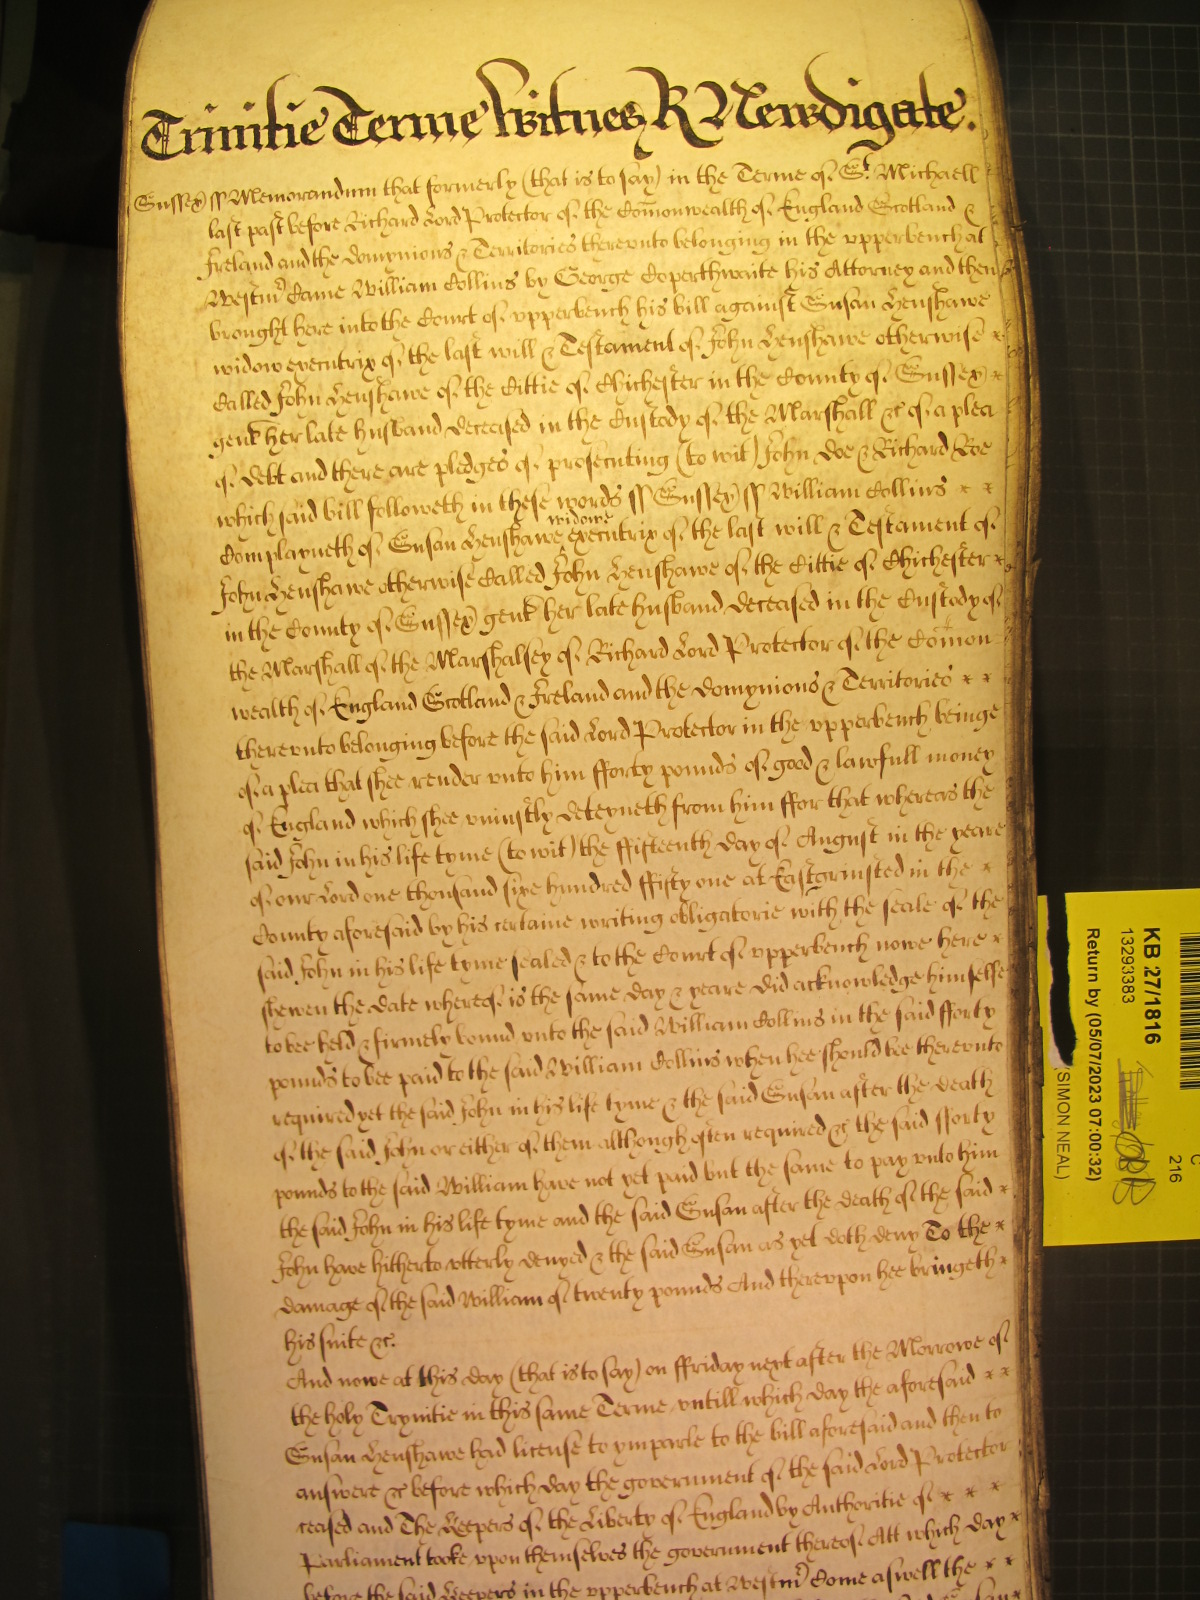 Trinitie Terme Witnes R Newdigate.
Sussex ss Memorandum that formerly (that is to say) in the Terme of St. Michaell
last past before Richard Lord Protector of the Com̃onwealth of England Scotland &
Ireland and the domynions & Territories therevnto belonging in the vpperbench at
Westmr Came William Collins by George Coperthwaite his Attorney and then
brought here into the Court of vpperbench his bill against Susan Henshawe
widow executrix of the last will & Testament of John Henshawe otherwise x
Called John Henshawe of the Cittie of Chichester in the County of Sussex x
gent her late husband deceased in the Custody of the Marshall &c of a plea
of debt and there are pledges of prosecuting (to wit) John Doe & Richard Roe
which said bill followeth in these words ss Sussex ss William Collins x x
widowe
Complayneth of Susan Henshawe executrix of the last will & Testament of
John Henshawe otherwise Called John Henshawe of the Cittie of Chichester x
in the County of Sussex gent her late husband deceased in the Custody of
the Marshall of the Marshalsey of Richard Lord Protector of the Com̃on
wealth of England Scotland & Ireland and the domynions & Territories x x
therevnto belonging before the said Lord Protector in the vpperbench beinge
of a plea that shee render vnto him fforty pounds of good & lawfull money
of England which shee vniustly deteyneth from him ffor that whereas the
said John in his life tyme (to wit) the ffifteenth day of August in the yeare
of our Lord one thousand sixe hundred ffifty one at Eastgrinsted in the x
County aforesaid by his certaine writing obligatorie with the seale of the
said John in his life tyme sealed & to the Court of vpperbench nowe here x
shewen the date whereof is the same day & yeare did acknowledge himselfe
to bee held & firmely bound vnto the said William Collins in the said fforty
pounds to bee paid to the said William Collins when hee should bee therevnto
required yet the said John in his life tyme & the said Susan after the death
of the said John or either of them although often required &c the said fforty
pounds to the said William have not yet paid but the same to pay vnto him
the said John in his life tyme and the said Susan after the death of the said x
John have hitherto vtterly denyed & the said Susan as yet doth deny To the x
damage of the said William of twenty pounds And therevpon hee bringeth x
his suite &c.
And nowe at this day (that is to say) on ffriday next after the Morrowe of
the holy Trynitie in this same Terme vntill which day the aforesaid x x
Susan Henshawe had license to ymparle to the bill aforesaid and then to
answere &c before which day the government of the said Lord Protector
ceased and The Keepers of the Liberty of England by Authoritie of x x x
Parliament tooke vpon themselves the government thereof Att which day x
before the said Keepers in the vpperbench at Westmr Come aswell the x x
KB 27/1816
13293383
Return by (05/07/2023 07:00:32)
SIMON NEAL)
216